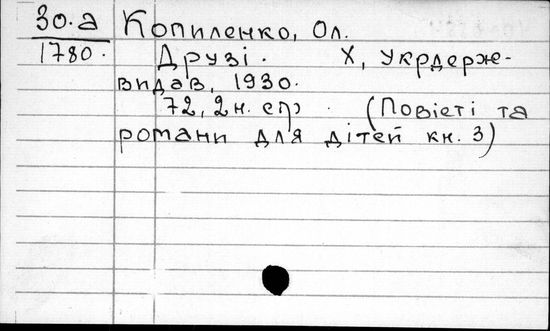 30.а Копиленко, Ол.
1780. Друзі. Х, Укрдерж-
видав, 1930.
72, 2 н. стр. (Повісті та
романи для дітей кн. 3)